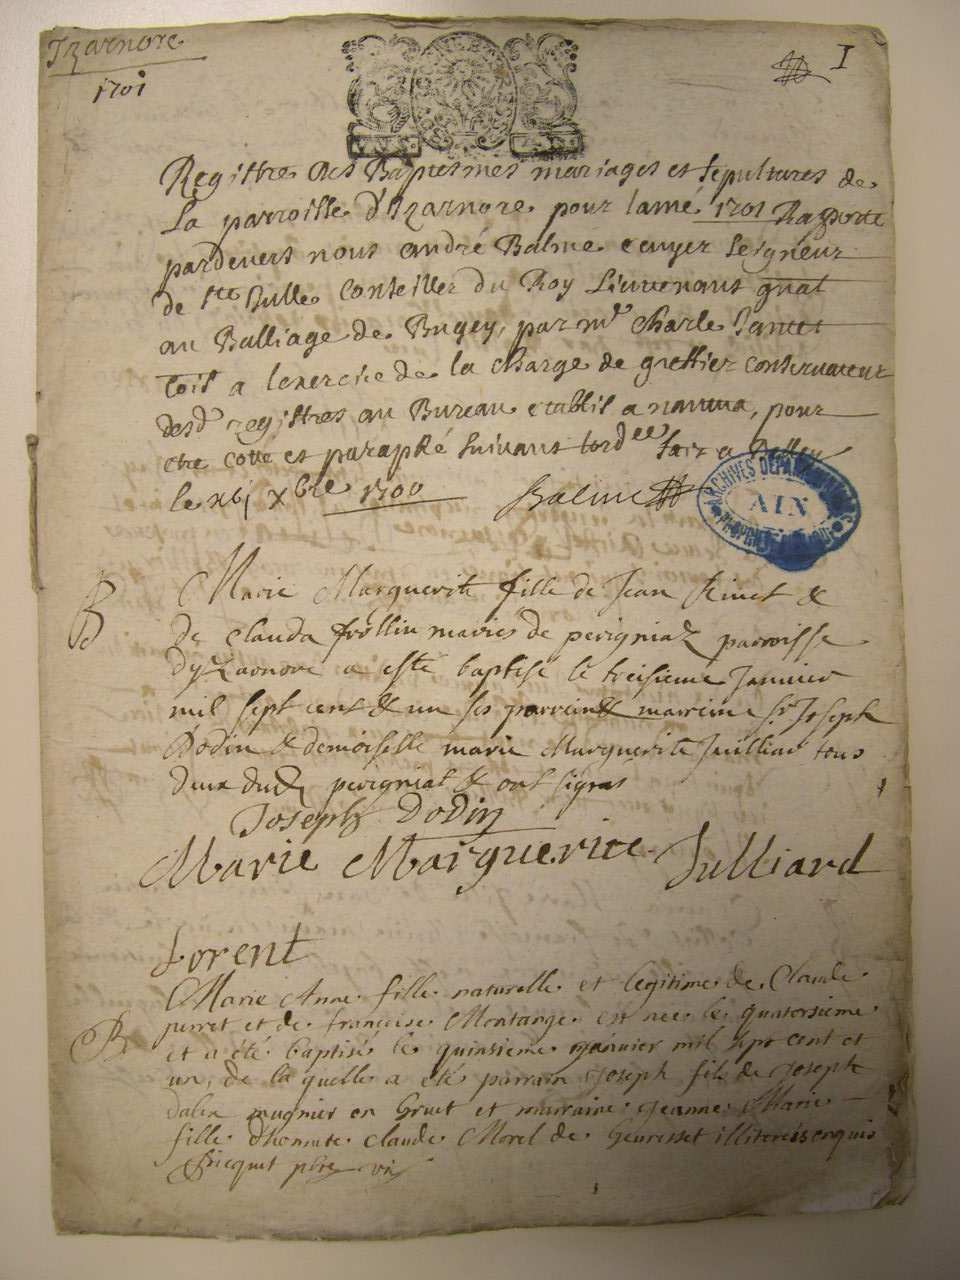 Izarnore
1701
I
Registre des Baptesmes mariages et sepultures de
La parroisse d'Izarnore pour lanné 1701 Raporté
pardevers nous andré Balme ecuyer seigneur
de Ste Julle Conseiller du Roy Lieutenant gnal
au Balliage de Bugey, par mr Charle
Comis a lexercise de la charge de greffier conservateur
desd registres au Bureau etablit a nantua, pour
etre cotté et paraphé suivant lord fait a Belley
le xbre 1700
Balme
ARCHIVES DÉPARTEMENTALES
AIN
PROPRIÉTÉ PUBLIQUE
B
Marie Marguerite fille de Jean &
de Clauda frollin maries de perigniaz parroisse
dyzarnore a esté baptisé le treisieme Janvier
mil sept cent & un ses parrein & marreine Sr Joseph
Dodin & demoiselle marie Marguerite Juilliard tous
deux dud perigniat & ont signes
Joseph Dodin
Marie Marguerite Julliard
Lorent
B
Marie Anne fille naturelle et legitime de Claude
perret et de francoise Montange est nee le quatorsieme
et a été baptisé le quinsieme janvier mil sept cent et
un, de la quelle a été parrain Joseph fils de Joseph
dalex mugnier en Gruet et marraine Jeanne Marie
fille d'honnete Claude Morel de Geuresset illiteres enquis
Bricquet pbre vic